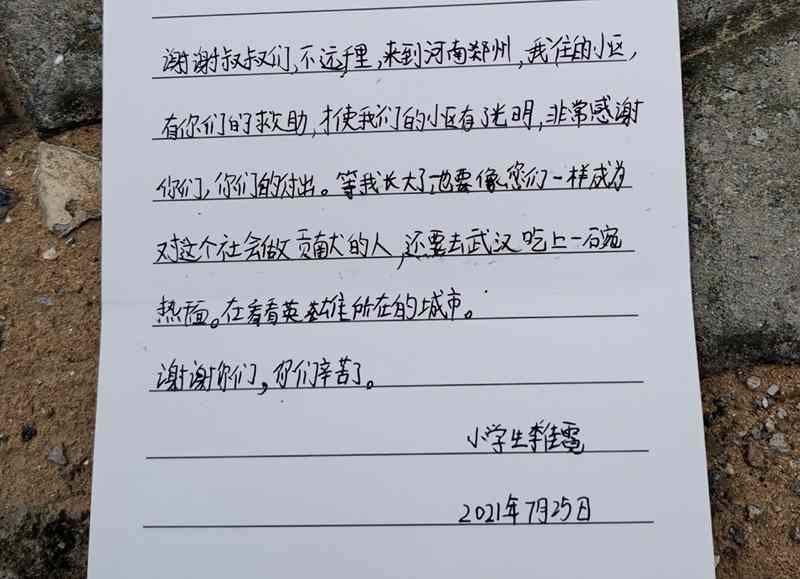 谢谢叔叔们,不远千里,来到河南郑州,我住的小区,
有你们的救助,才使我们的小区有了光明,非常感谢
你们,你们的付出。等我长大了也要像您们一样成为
对这个社会做贡献的人,还要去武汉吃上一碗
热面。在看看英雄所在的城市。
谢谢你们,你们辛苦了。
小学生李佳霓
2021年7月25日